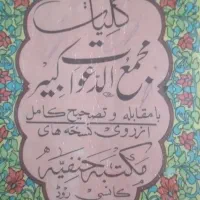 کلیات
مجمع الدعوات کبیر
با مقابله و تصحیح کامل
از روی نسخه های
مکتبه حنفیه
کانسی روڈ